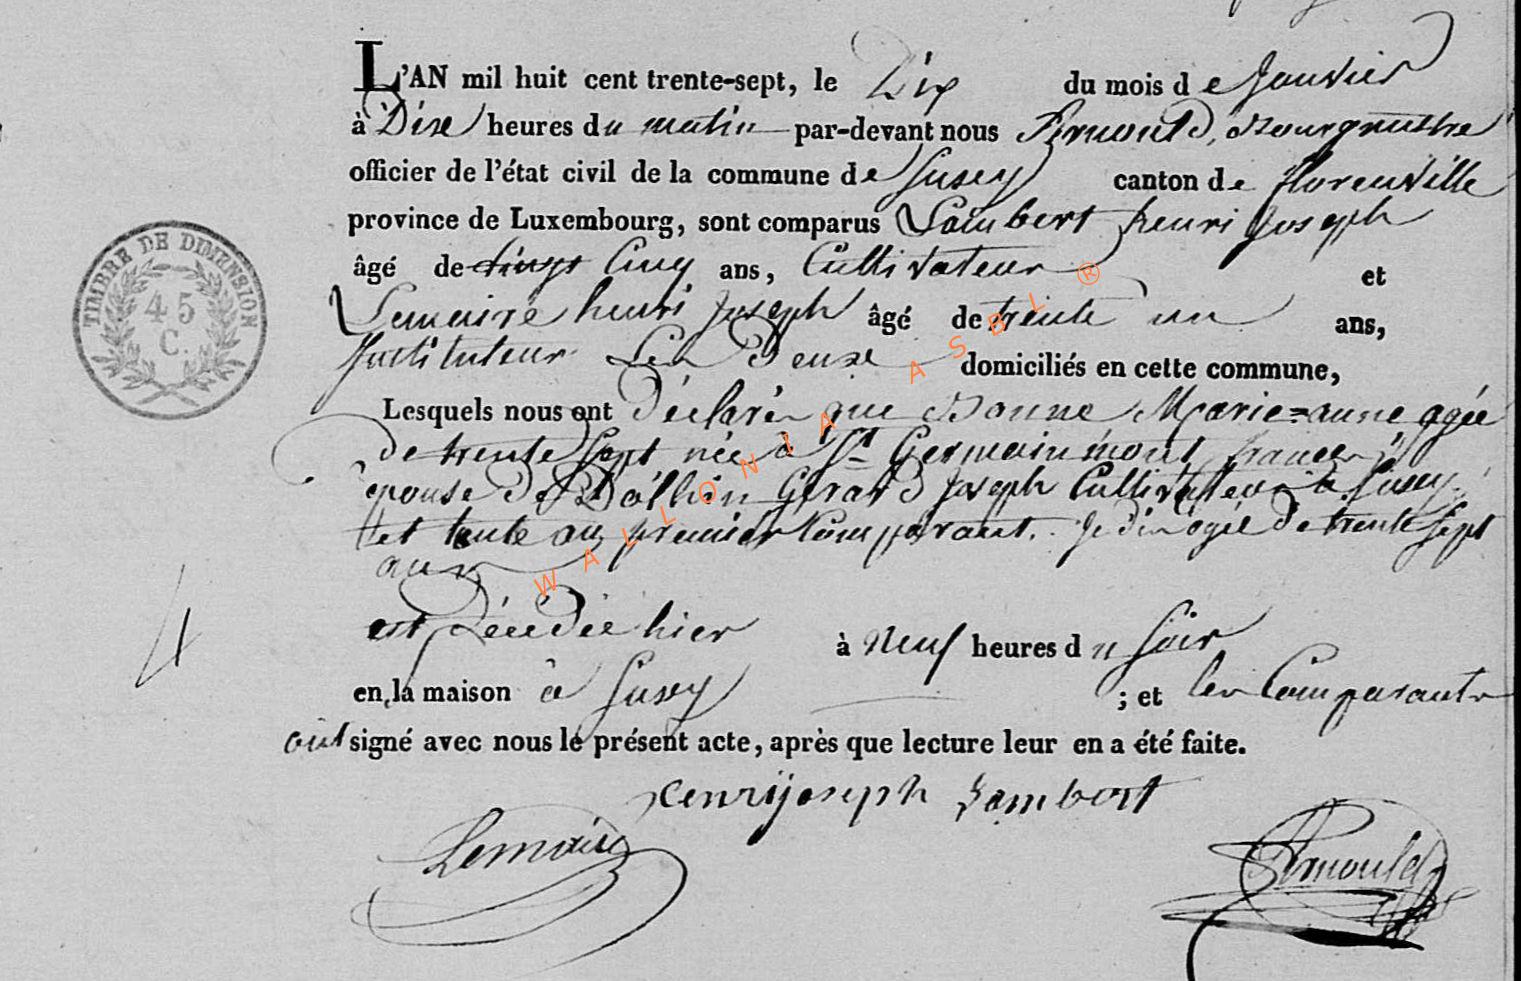 L'AN mil huit cent trente-sept, le Dix du mois de Janvier
à Dixe heures du matin par-devant nous Arnould, Bourgmestre
officier de l'état civil de la commune de Jusey canton de florenville
province de Luxembourg, sont comparus Lambert henri Joseph
âgé de vingt Cinq ans, Cultivateur et
Lemaire henri Joseph âgé de trente un ans,
Instituteur Les Deux domiciliés en cette commune,
Lesquels nous ont déclaré que Bonne Marie=anne agée
de trente Sept née à St Germainmont france
épouse de Gerard Joseph Cultivateur à Jusey.
et tente au premier Comparant. Je dis agée de trente Sept
ans
est Décédée hier à Neuf heures du Soir
en la maison à Jusey ; et les Comparants
ont signé avec nous le présent acte, après que lecture leur en a été faite.
henrijoseph Lambert
Lemaire
Arnould
TIMBRE DE DIMENSION
45
C.
4
WALLONIA ASBL ®